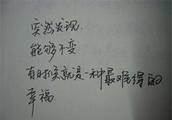 突然发现
能够不变
有时候就是一种最难得的
幸福